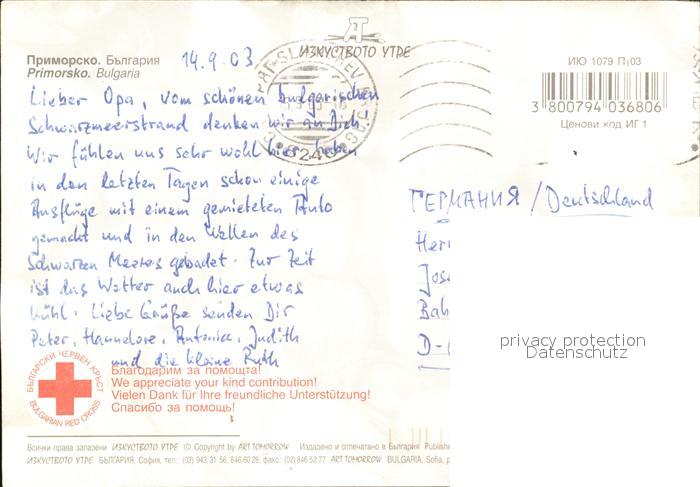 Приморско. България
Primorsko. Bulgaria
14.9.03
ИЗКУСТВОТО УТРЕ
ИЮ 1079 П|03
3 800794 036806
Ценови код ИГ 1
8240
Lieber Opa, vom schönen bulgarischen
Schwarzmeerstrand denken wir an Dich.
Wir fühlen uns sehr wohl hier, haben
in den letzten Tagen schon einige
Ausflüge mit einem gemieteten Auto
gemacht und in den Wellen des
Schwarzen Meeres gebadet. Zur Zeit
ist das Wetter auch hier etwas
kühl. Liebe Grüße senden Dir
Peter, Hannelore, Antonia, Judith
und die kleine Ruth
ГЕРМАНИЯ / Deutschland
Her
Jose
Bah
D-
privacy protection
Datenschutz
БЪЛГАРСКИ ЧЕРВЕН КРЪСТ
BULGARIAN RED CROSS
Благодарим за помощта!
We appreciate your kind contribution!
Vielen Dank für Ihre freundliche Unterstützung!
Спасибо за помощь!
Всички права запазени ИЗКУСТВОТО УТРЕ © Copyright by ART TOMORROW Издадено и отпечатано в България Publishe
ИЗКУСТВОТО УТРЕ БЪЛГАРИЯ, София, тел.: (02) 943 31 56, 846 60 28, факс: (02) 846 52 77 ART TOMORROW BULGARIA, Sofia, p